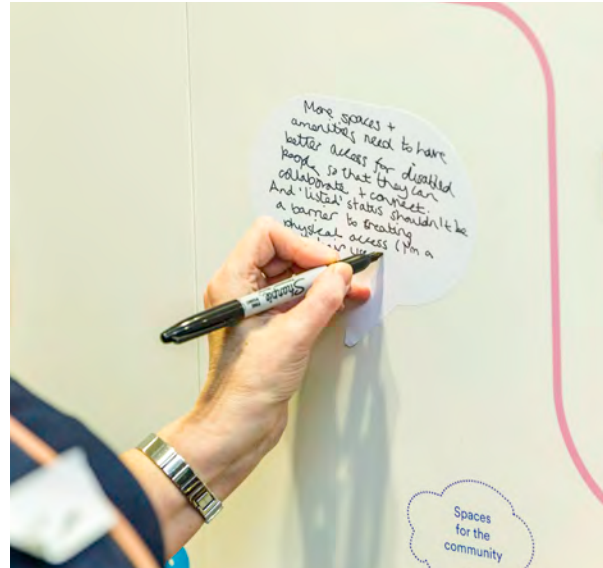 More spaces +
amenities need to have
better access for disabled
people, so that they can
collaborate + connect.
And 'listed' status shouldn't be
a barrier to creating
physical access (I'm a
Sharpie
Spaces
for the
community